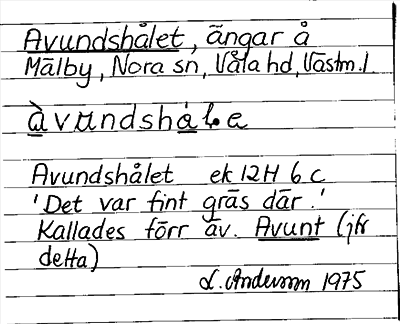 Avundshålet, ängar å
Mälby, Nora sn, Våla hd, Västm.l.
àvundshå̀le
Avundshålet ek 12H 6 c
'Det var fint gräs där.'
Kallades förr av. Avunt (jfr
detta)
L. Andersson 1975